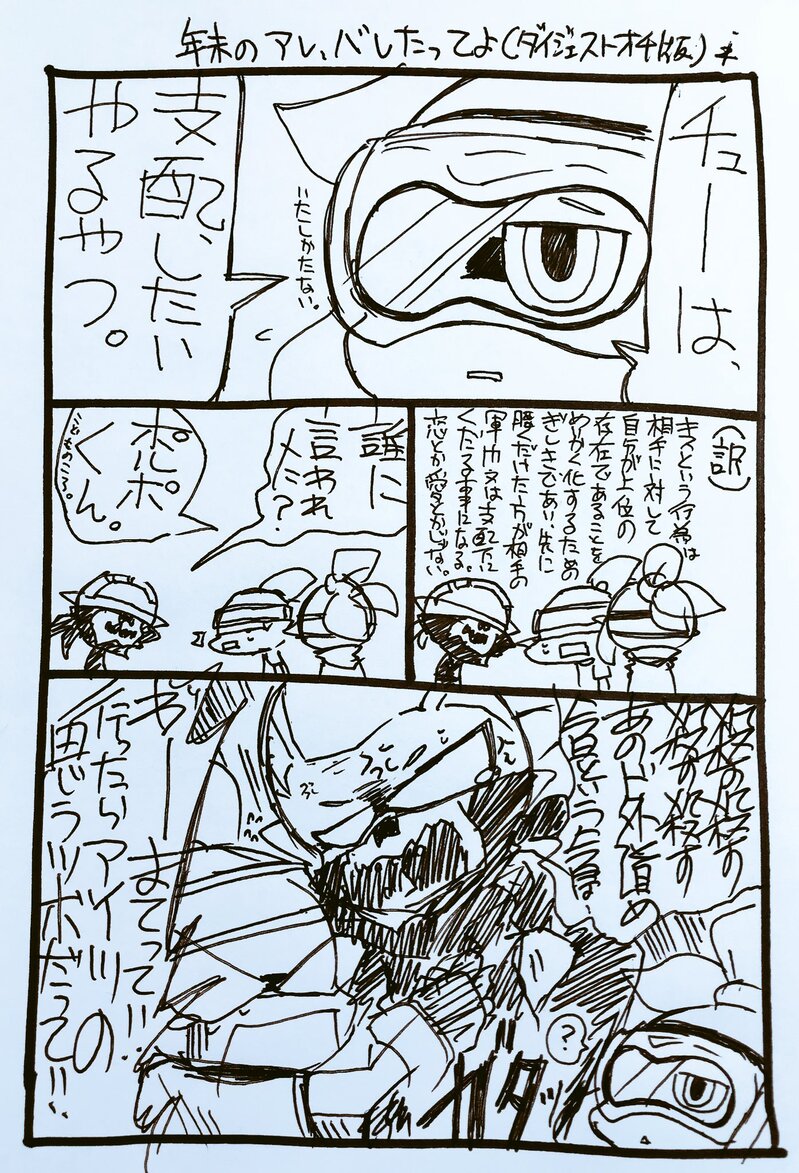 年末のアレ、バレたってよ(ダイジェストオチ版)
チューは、
支配したい
やるやつ。
いたしかたない。
(訳)
キスという行為は
相手に対して
自分が上位の
存在であることを
めいかく化するための
ぎしきであり、先に
腰くだけた方が相手の
軍門又は支配下に
くだる事になる。
恋とか愛とかじゃない。
誰に
言われ
メた?
ポルポ
くん。
こどものころ。
殺す
殺す
あのド外道め
今日という今日は…
わー
まてって!!
行ったらアイツの
思うツボだって!!
ガタッ
?